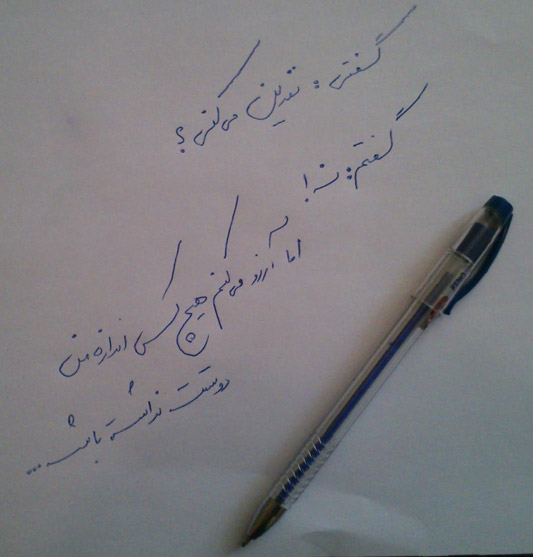 گفتی: نفرین می‌کنی؟
گفتم: نه!
اما آرزو می‌کنم هیچ کس اندازه من
دوستت نداشته باشه...